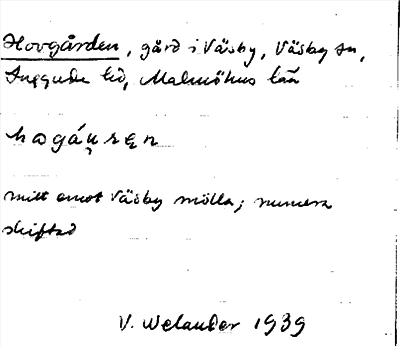 Hovgården, gård i Väsby, Väsby sn,
Luggude hd, Malmöhus län
hagáu̯ʀɛn
mitt emot Väsby mölla; numera
skiftad
V. Welander 1939